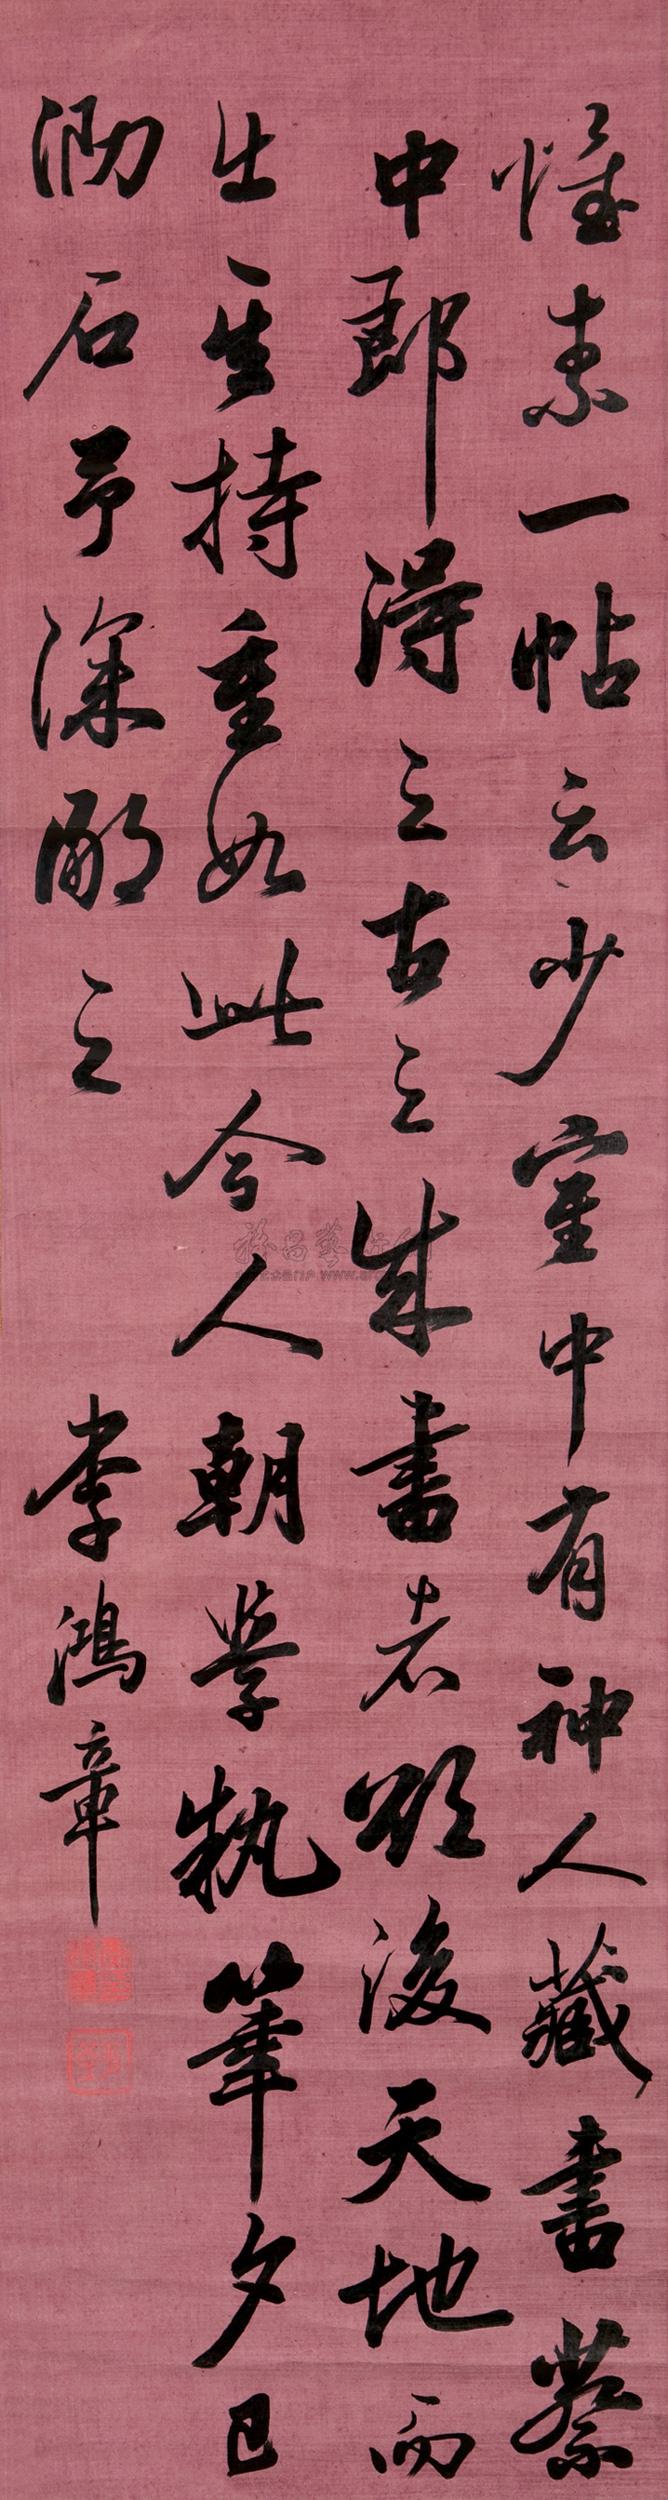 懷素一帖云少室中有神人藏書蔡
中郎得之古之成書者欲後天地而
出其持重如此今人朝學執筆夕已
泐石予深鄙之
李鴻章